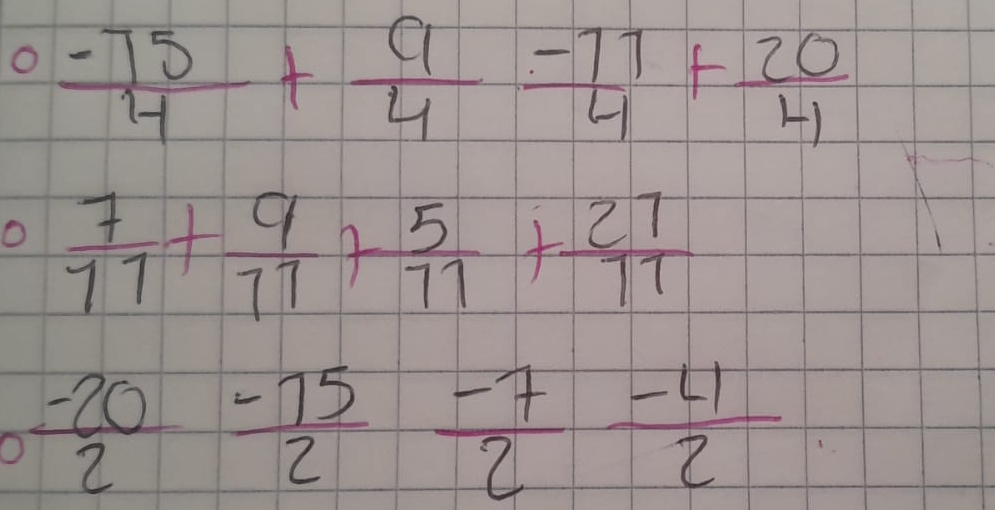 -15/4 + 9/4 -11/4 + 20/4
7/11 + 9/11 + 5/11 + 21/11
-20/2 -15/2 -7/2 -4/2